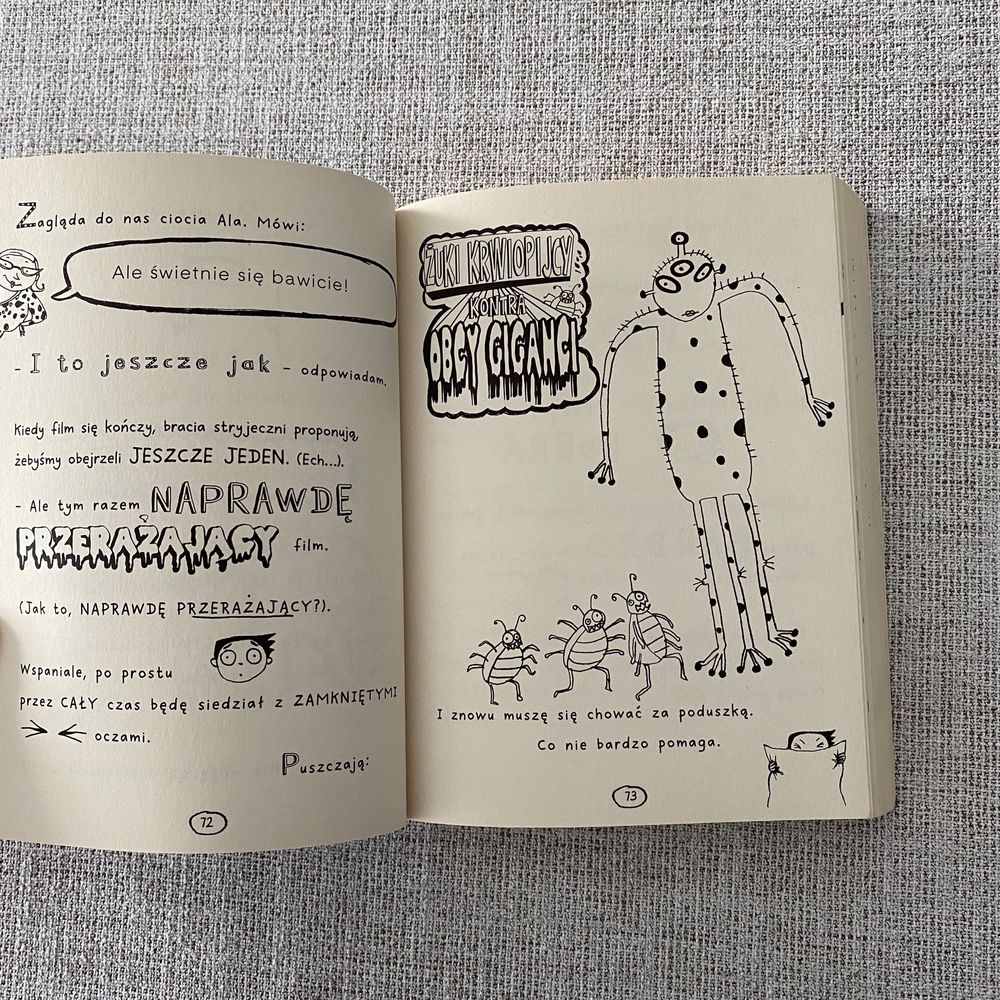 Zagląda do nas ciocia Ala. Mówi:
Ale świetnie się bawicie!
- I to jeszcze jak - odpowiadam.
Kiedy film się kończy, bracia stryjeczni proponują,
żebyśmy obejrzeli JESZCZE JEDEN. (Ech...).
- Ale tym razem NAPRAWDĘ
PRZERAŻAJĄCY film.
(Jak to, NAPRAWDĘ PRZERAŻAJĄCY?).
Wspaniale, po prostu
przez CAŁY czas będę siedział z ZAMKNIĘTYMI
oczami.
Puszczają:
72
ŻUKI KRWIOPIJCY
KONTRA
OBCY GIGANCI
I znowu muszę się chować za poduszką.
Co nie bardzo pomaga.
73